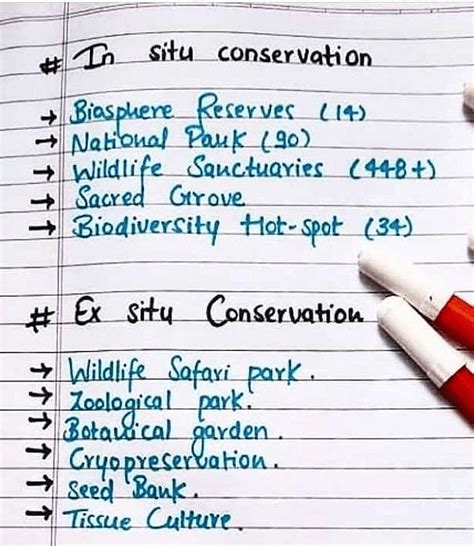 # In situ conservation
→ Biasphere Reserves (14)
→ National Park (90)
→ Wildlife Sanctuaries (448+)
→ Sacred Grove
→ Biodiversity Hot-spot (34)
# Ex situ Conservation
→ Wildlife Safari park.
→ Zoological park.
→ Botanical garden.
→ Cryopreservation.
→ Seed Bank.
→ Tissue Culture.